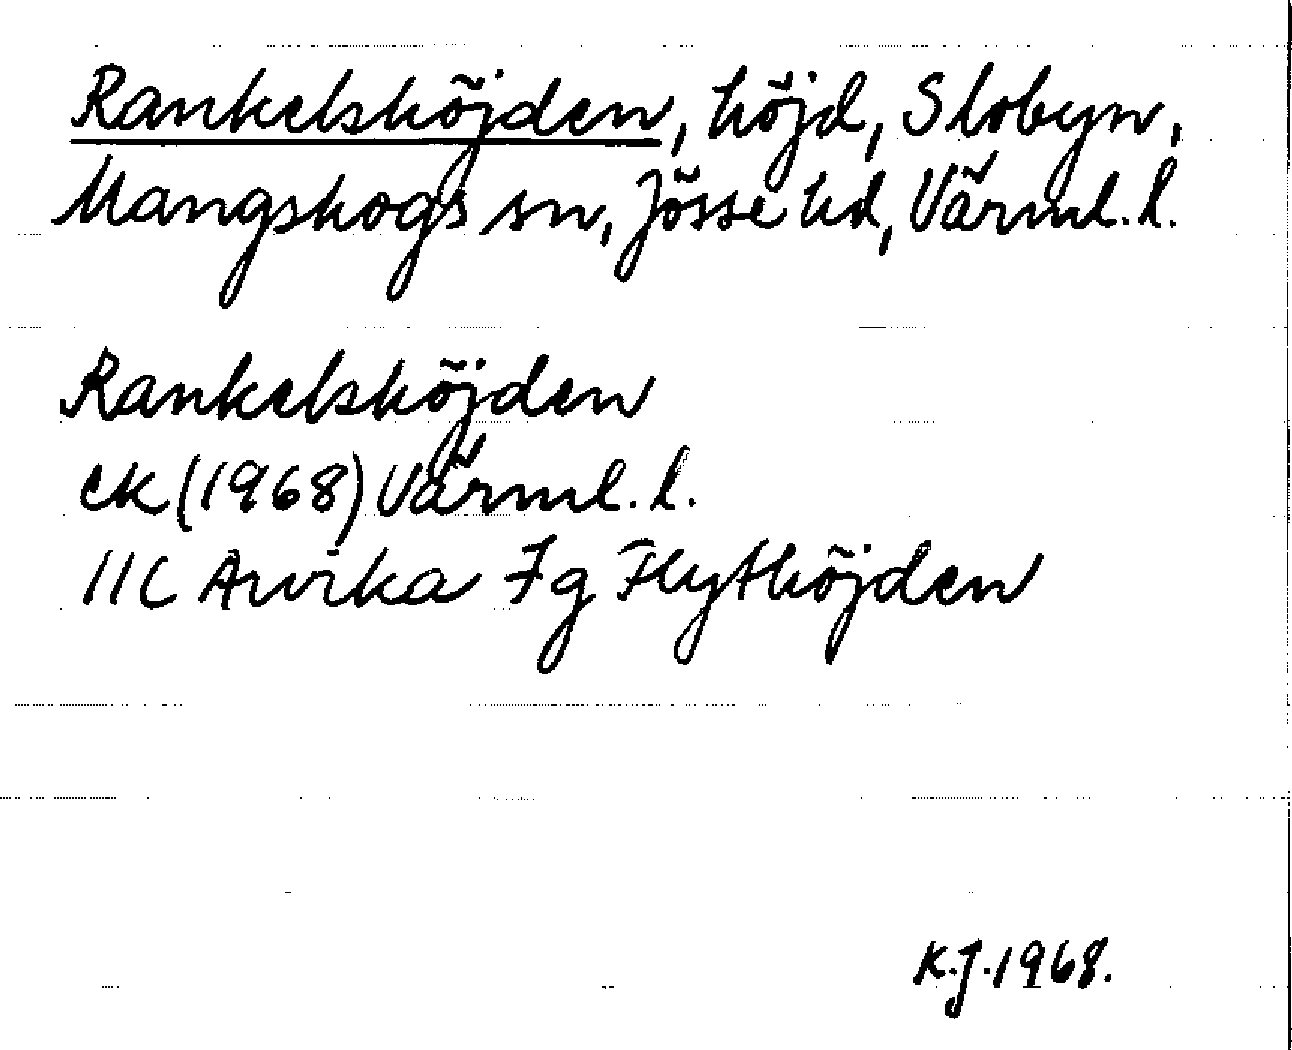 Rankelshöjden, höjd, Slobyn,
Mangskogs sn, Jösse hd, Värml. l.
Rankelshöjden
EK (1968) Värml. l.
11C Arvika 7g Flythöjden
K.J. 1968.